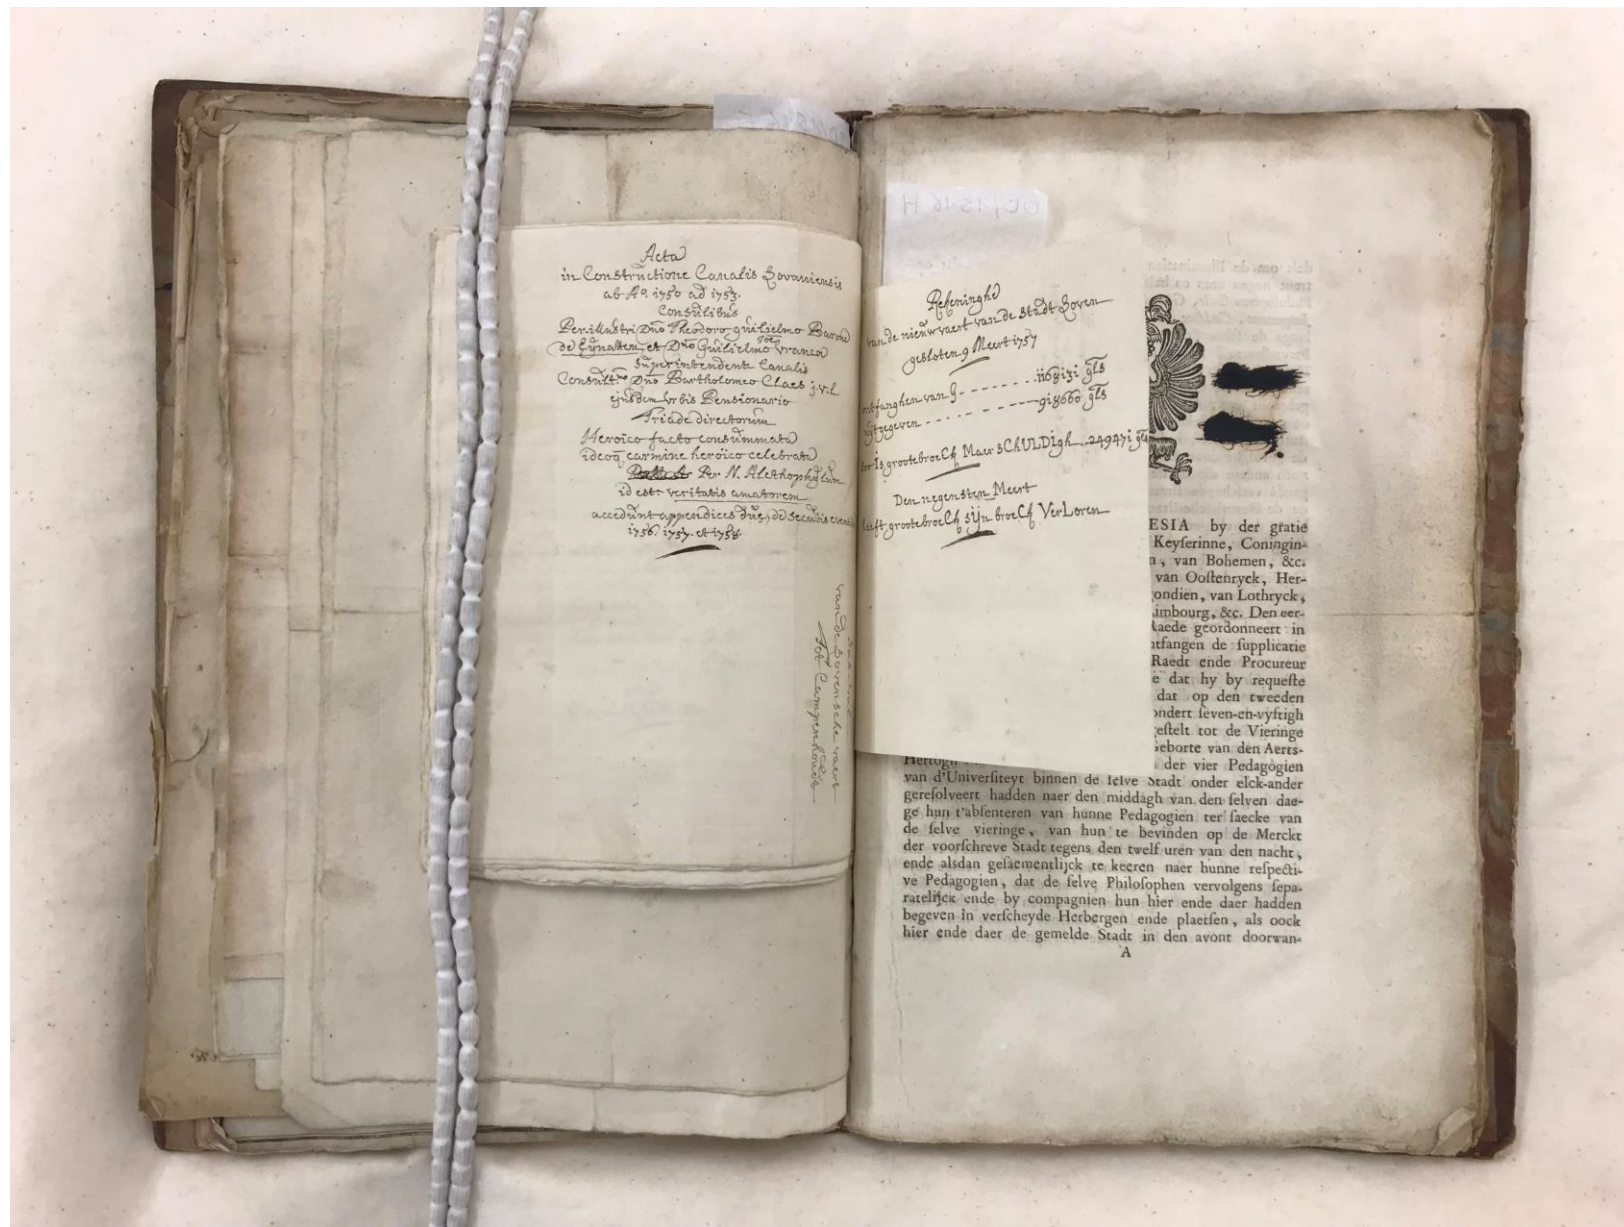 Acta
in Constructione Canalis Lovaniensis
ab Ao. 1750 ad 1753.
Consulibus
Perillustri Dno Theodoro guilielmo Barone
de Eynatten et Dno Guilielmo Vranca
Superintendente Canalis
Consultmo Dno Bartholomeo Claes j.v.l.
ejusdem urbis Pensionario
Triade directorum
Heroico facto consummata
ideoq carmine heroico celebrata
Per N. Alethophylum
id est veritatis amatorem
accedunt appendices duae, de secutis
1756, 1757. et 1758.
van de Lovensche vaert
tot Campenhout
00/1516 H
Rekeninghe
van de nieuw vaert van de Stadt Loven
gesloten 9 Meert 1757
ontfanghen van 9 - - - - - - - 1168131 gls
uytgegeven - - - - - - - - 918660 gls
Is grootebroeCk Maer sChULDIgh .. 249471 gls
Den negensten Meert
heeft grootebroeCk sIJn broeCk VerLoren
ESIA by der gratie
Keyserinne, Coningin-
n, van Bohemen, &c.
van Oostenryck, Her-
ondien, van Lothryck,
imbourg, &c. Den eer-
Raede geordonneert in
ntfangen de supplicatie
Raedt ende Procureur
e dat hy by requeste
dat op den tweeden
ondert seven-en-vyftigh
gestelt tot de Vieringe
Geborte van den Aerts-
Hertogh der vier Pedagogien
van d'Universiteyt binnen de selve Stadt onder elck-ander
geresolveert hadden naer den middagh van den selven dae-
ge hun t'absenteren van hunne Pedagogien ter saecke van
de selve vieringe, van hun te bevinden op de Merckt
der voorschreve Stadt tegens den twelf uren van den nacht,
ende alsdan gesaementlijck te keeren naer hunne respecti-
ve Pedagogien, dat de selve Philosophen vervolgens sepa-
ratelijck ende by compagnien hun hier ende daer hadden
begeven in verscheyde Herbergen ende plaetsen, als oock
hier ende daer de gemelde Stadt in den avont doorwan-
A